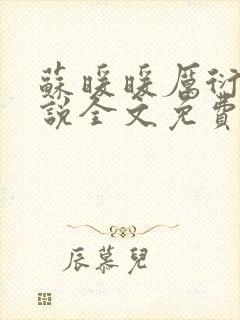 蘇暖暖厲衍
說全文免費
辰慕兒